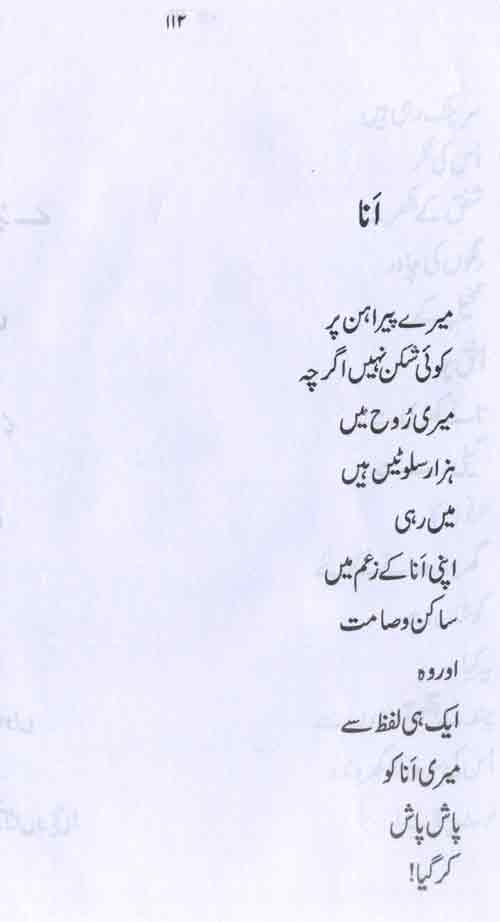 ۱۱۳
اَنا
میرے پیراہن پر
کوئی شکن نہیں اگرچہ
میری رُوح میں
ہزار سلوٹیں ہیں
میں رہی
اپنی اَنا کے زعم میں
ساکن و صامت
اور وہ
ایک ہی لفظ سے
میری اَنا کو
پاش پاش
کر گیا!